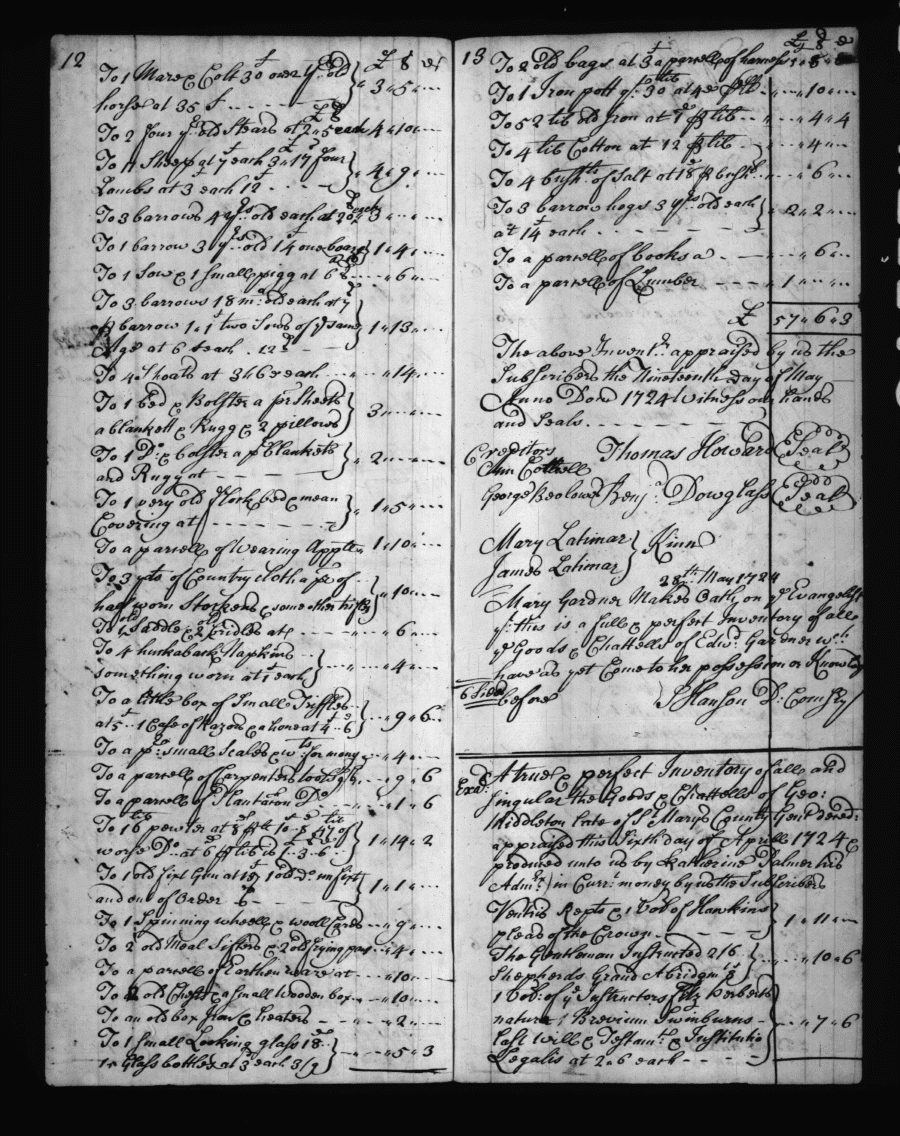 12
£ s d
To 1 Mare & Colt 30 s one 2 yr old
horse at 35 s - - - - } 3 " 5 " --
To 2 four yr old Stears at 2 " 5 each 4 " 10 " --
To 11 Sheep at 7 s each 3 " 17 four
Lambs at 3 s each 12 - - - } 4 " 9 " --
To 3 barrows 4 yrs old each at 20 s each 3 " -- " --
To 1 barrow 3 yrs old 14 s one boar 1 " 4 " --
To 1 Sow & 1 Small pigg at 6 s -- " 6 " --
To 3 barrows 18 mo old each at 7 s
p barrow 1 " 1 s two Sows of ye Same
Age at 6 s each . 12 s } 1 " 13 " --
To 4 Shoats at 3 " 6 each - - - " 14 " --
To 1 bed & Bolster a pr Sheets
a blankett & Rugg & 2 pillows } 3 " -- " --
To 1 Do & bolster a pr blanketts
and Rugg at - - - - } 2 " -- " --
To 1 very old flock bed & mean
Covering at - - - - } 1 " 5 " --
To a parcell of Wearing Apple 1 " 10 " --
To 3 yds of Country Cloth a pr of
half worn Stockens & some other trifles } " 10 " --
To 1 old Saddle & 2 old bridles at - - " 6 " --
To 4 huckaback Napkins
something worn at 1 s each } " 4 " --
To a little box of Small Triffles
at 5 -- 1 Case of Razors & a hone at 4 " 6 } " 9 " 6
To a pr small Scales & wts for mony - " 4 " --
To a parcell of Carpenters tools - " 9 " 6
To a parcell of Plantation Do - - " 1 " 6
To 16 lib pewter at
worse Do at 6 d p lib is " 3 " 6 } 1 " 14 " 2
To 1 old fixt Gun at 15 s 1 old Do unfixt
and out of Order 6 - - - } 1 " 1 " --
To 1 Spinning wheell & wooll Cards - " 9 " --
To 2 old Meal Sifters & 2 old frying pans " 4 " --
To a parcell of Earthen ware at - - " 10 " --
To 2 old Chests & a small wooden box - " 10 " --
To an old box Iron & heaters - - " 2 " --
To 1 small Looking glass 18 d
Glass bottles at 3 d each 3/9 } " 5 " 3
13
£ s d
To 2 old bags at 3 s a parcell of harness
To 1 Iron pott qt 30 lib at 4 d p lb - " 10 " --
To 52 lib old Iron at 1 d p lib - - " 4 " 4
To 4 lib Cotton at 12 d p lib - - " 4 " --
To 4 bushls of Salt at 18 d p bushl - " 6 " --
To 3 barrow hogs 3 yrs old each
at 14 s each - - - - } 2 " 2 " --
To a parcell of books a - - - " 6 " --
To a parcell of Lumber - - - 1 " -- " --
£ 57 " 6 " 3
The above Inventry appraised by us the
Subscribers the Nineteenth day of May
Anno Dom 1724 Witness our hands
and Seals. - - - - - -
Creditors Thomas Howard (Seal)
Ann Cottrell
George Beslows Benja Dowglass (Seal)
Mary Latimar } Kinn
James Latimar }
28th May 1724
Mary Gardner Makes Oath on ye Evangelsts
yt this is a full & perfect Inventory of all
ye Goods & Chattells of Edwd Gardner wch
have as yet Come to her possession or Knowledge
6 Sides before S Hanson Dy Comsry
Exd A true & perfect Inventory of all and
Singular the Goods & Chattells of Geo:
Middleton Late of St Marys County Gent deced
appraised this Sixth day of Aprill 1724 &
produced unto us by Katherine Palmer his
Admx in Currt money by us the Subscribers
Ventris Repts & 1 Vol: of Hawkins
pleas of the Crown - - - } 1 " 11 " --
The Gentleman Instructed 2 s 6
Shepherds Grand Abridgmt 8 s } " 10 " 6
1 Vol: of ye Instructors Fitz Herberts
natura Brevium Swinburns
Last will & Testamt & Institutio
Legalis at 2 " 6 each - - - } " 7 " 6